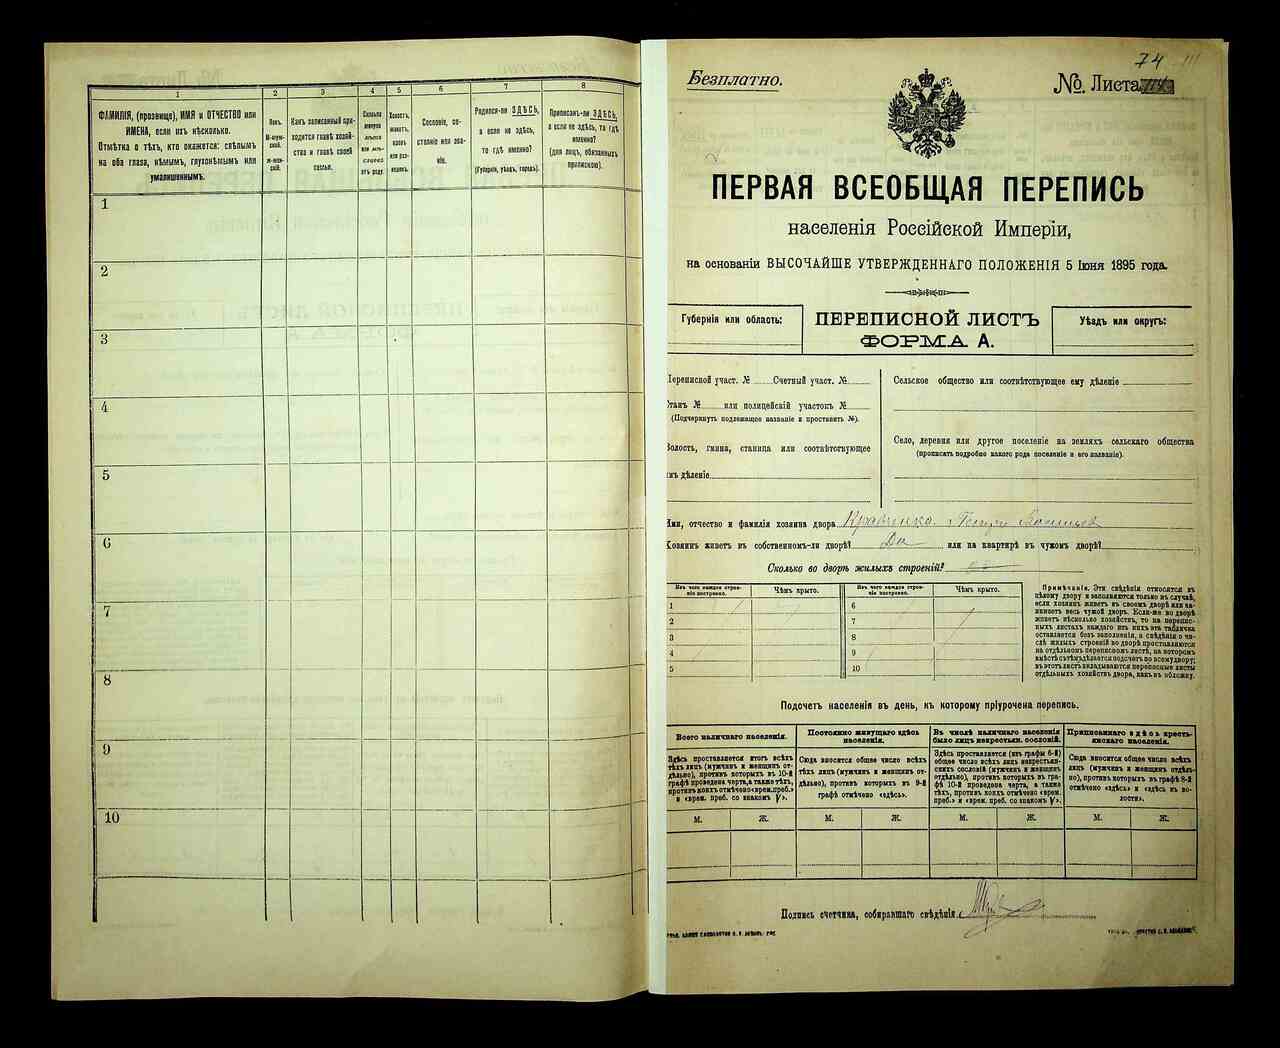 1
2
3
4
5
6
7
8
ФАМИЛІЯ, (прозвище), ИМЯ и ОТЧЕСТВО или
ИМЕНА, если ихъ нѣсколько.
Отмѣтка о тѣхъ, кто окажется: слѣпымъ
на оба глаза, нѣмымъ, глухонѣмымъ или
умалишеннымъ.
Полъ.
М-муж-
ской.
Ж-жен-
скій.
Какъ записанный при-
ходится главѣ хозяй-
ства и главѣ своей
семьи.
Сколько
минуло
лѣтъ
или мѣ-
сяцевъ
отъ роду.
Холостъ,
женатъ,
вдовъ
или раз-
веденъ.
Сословіе, со-
стояніе или зва-
ніе.
Родился-ли ЗДѢСЬ,
а если не здѣсь,
то гдѣ именно?
(Губернія, уѣздъ, городъ).
Приписанъ-ли ЗДѢСЬ,
а если не здѣсь, то гдѣ
именно?
(для лицъ, обязанныхъ
припискою).
1
2
3
4
5
6
7
8
9
10
74
Безплатно.
№ Листа
ПЕРВАЯ ВСЕОБЩАЯ ПЕРЕПИСЬ
населенія Россійской Имперіи,
на основаніи ВЫСОЧАЙШЕ УТВЕРЖДЕННАГО ПОЛОЖЕНІЯ 5 Іюня 1895 года.
Губернія или область:
ПЕРЕПИСНОЙ ЛИСТЪ
ФОРМА А.
Уѣздъ или округъ:
Переписной участ. № Счетный участ. №
Станъ № или полицейскій участокъ №
(Подчеркнуть подлежащее названіе и проставить №).
Волость, гмина, станица или соотвѣтствующее
имъ дѣленіе
Сельское общество или соотвѣтствующее ему дѣленіе
Село, деревня или другое поселеніе на земляхъ сельскаго общества
(прописать подробно какого рода поселеніе и его названіе).
Имя, отчество и фамилія хозяина двора Кравченко Петръ Васильев
Хозяинъ живетъ въ собственномъ-ли дворѣ? Да или на квартирѣ въ чужомъ дворѣ?
Сколько во дворѣ жилыхъ строеній?
Изъ чего каждое строе-
ніе построено.
Чѣмъ крыто.
Изъ чего каждое строе-
ніе построено.
Чѣмъ крыто.
1
2
3
4
5
6
7
8
9
10
Примѣчаніе. Эти свѣдѣнія относятся къ
цѣлому двору и заполняются только въ случаѣ,
если хозяинъ живетъ въ своемъ дворѣ или за-
нимаетъ весь чужой дворъ. Если-же во дворѣ
живетъ нѣсколько хозяйствъ, то на перепис-
ныхъ листахъ каждаго изъ нихъ эта табличка
оставляется безъ заполненія, а свѣдѣнія о чи-
слѣ жилыхъ строеній во дворѣ проставляются
на отдѣльномъ переписномъ листѣ, на которомъ
вмѣстѣ съ тѣмъ дѣлается подсчетъ по всему двору;
въ этотъ листъ вкладываются переписные листы
отдѣльныхъ хозяйствъ двора, какъ въ обложку.
Подсчетъ населенія въ день, къ которому пріурочена перепись.
Всего наличнаго населенія.
Постоянно живущаго здѣсь
населенія.
Въ числѣ наличнаго населенія
было лицъ некрестьян. сословій.
Приписаннаго здѣсь кресть-
янскаго населенія.
Здѣсь проставляется итогъ всѣхъ
тѣхъ лицъ (мужчинъ и женщинъ от-
дѣльно), противъ которыхъ въ 10-й
графѣ проведена черта, а также тѣхъ,
противъ коихъ отмѣчено «врем. преб.»
и «врем. преб. со знакомъ V».
Сюда вносится общее число всѣхъ
тѣхъ лицъ (мужчинъ и женщинъ от-
дѣльно), противъ которыхъ въ 9-й
графѣ отмѣчено «здѣсь».
Здѣсь проставляется (изъ графы 6-й)
общее число всѣхъ лицъ некрестьян-
скихъ сословій (мужчинъ и женщинъ
отдѣльно), противъ которыхъ въ гра-
фѣ 10-й проведена черта, а также
тѣхъ, противъ коихъ отмѣчено «врем.
преб.» и «врем. преб. со знакомъ V».
Сюда вносится общее число всѣхъ
лицъ (мужчинъ и женщинъ отдѣль-
но), противъ которыхъ въ графѣ 8-й
отмѣчено «здѣсь» и «здѣсь въ во-
лости».
М.
Ж.
М.
Ж.
М.
Ж.
М.
Ж.
Подпись счетчика, собиравшаго свѣдѣнія